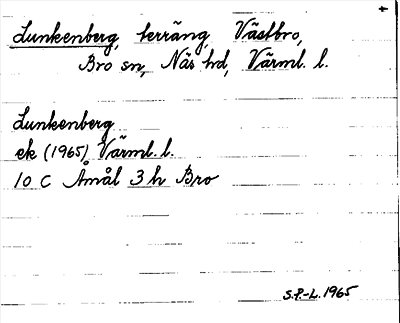 +
Lunkenberg, terräng, Västbro,
Bro sn, Näs hd, Värml. l.
Lunkenberg
ek (1965) Värml. l.
10 C Åmål 3 h Bro
S.P.-L. 1965